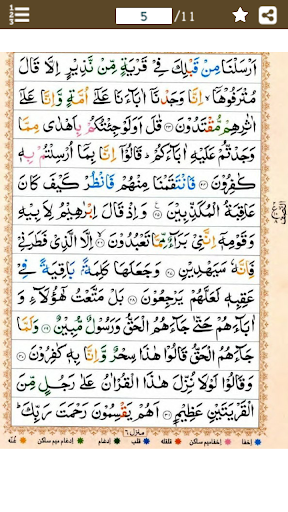 5 /11
اَرْسَلْنَا مِنْ قَبْلِكَ فِيْ قَرْيَةٍ مِّنْ نَّذِيْرٍ اِلَّا قَالَ
مُتْرَفُوْهَاۤ اِنَّا وَجَدْنَاۤ اٰبَآءَنَا عَلٰۤى اُمَّةٍ وَّاِنَّا عَلٰۤى
اٰثٰرِهِمْ مُّقْتَدُوْنَ ۝۲۳ قٰلَ اَوَلَوْ جِئْتُكُمْ بِاَهْدٰى مِمَّا
وَجَدْتُّمْ عَلَيْهِ اٰبَآءَكُمْ ؕ قَالُوْۤا اِنَّا بِمَاۤ اُرْسِلْتُمْ بِهٖ
كٰفِرُوْنَ ۝۲۴ فَانْتَقَمْنَا مِنْهُمْ فَانْظُرْ كَيْفَ كَانَ
عَاقِبَةُ الْمُكَذِّبِيْنَ ۝۲۵ وَاِذْ قَالَ اِبْرٰهِيْمُ لِاَبِيْهِ
وَقَوْمِهٖۤ اِنَّنِيْ بَرَآءٌ مِّمَّا تَعْبُدُوْنَ ۝۲۶ اِلَّا الَّذِيْ فَطَرَنِيْ
فَاِنَّهٗ سَيَهْدِيْنِ ۝۲۷ وَجَعَلَهَا كَلِمَةًۢ بَاقِيَةً فِيْ
عَقِبِهٖ لَعَلَّهُمْ يَرْجِعُوْنَ ۝۲۸ بَلْ مَتَّعْتُ هٰۤؤُلَآءِ وَ
اٰبَآءَهُمْ حَتّٰى جَآءَهُمُ الْحَقُّ وَرَسُوْلٌ مُّبِيْنٌ ۝۲۹ وَلَمَّا
جَآءَهُمُ الْحَقُّ قَالُوْا هٰذَا سِحْرٌ وَّاِنَّا بِهٖ كٰفِرُوْنَ ۝۳۰
وَقَالُوْا لَوْلَا نُزِّلَ هٰذَا الْقُرْاٰنُ عَلٰى رَجُلٍ مِّنَ
الْقَرْيَتَيْنِ عَظِيْمٍ ۝۳۱ اَهُمْ يَقْسِمُوْنَ رَحْمَتَ رَبِّكَ ؕ
منزل ٦
اخفا اخفامیم ساکن قلقله قلب ادغام ادغام میم ساکن غُنّه